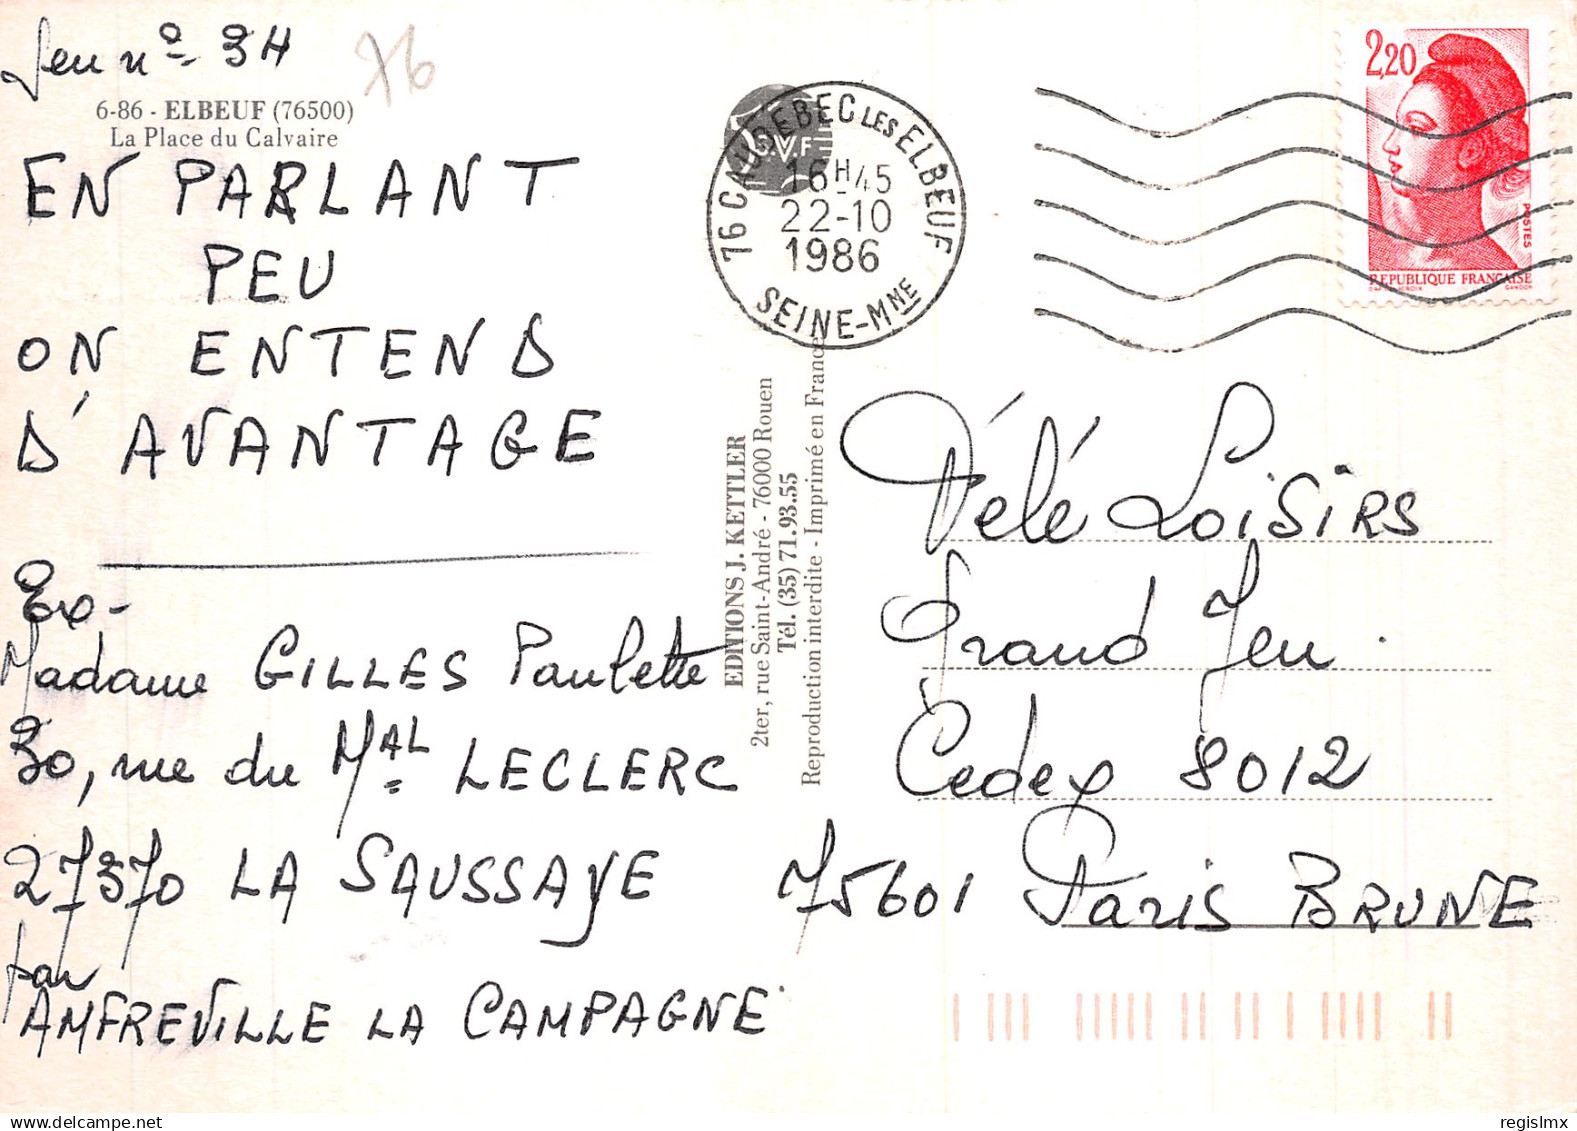 Jeu nº 34
76
6-86 - ELBEUF (76500)
La Place du Calvaire
EN PARLANT
PEU
ON ENTEND
D'AVANTAGE
Ex-
Madame GILLES Paulette
30, rue du Mal LECLERC
27370 LA SAUSSAYE
par
AMFREVILLE LA CAMPAGNE
EDITIONS J. KETTLER
2ter, rue Saint-André - 76000 Rouen
Tél. (35) 71.93.55
Reproduction interdite - Imprimé en France
S.V.F
76 CAUDEBEC LES ELBEUF
16H45
22-10
1986
SEINE-MME
2,20
POSTES
REPUBLIQUE FRANÇAISE
GANDON
Télé Loisirs
Grand Jeu
Cedex 8012
75601 Paris BRUNE
regislmx